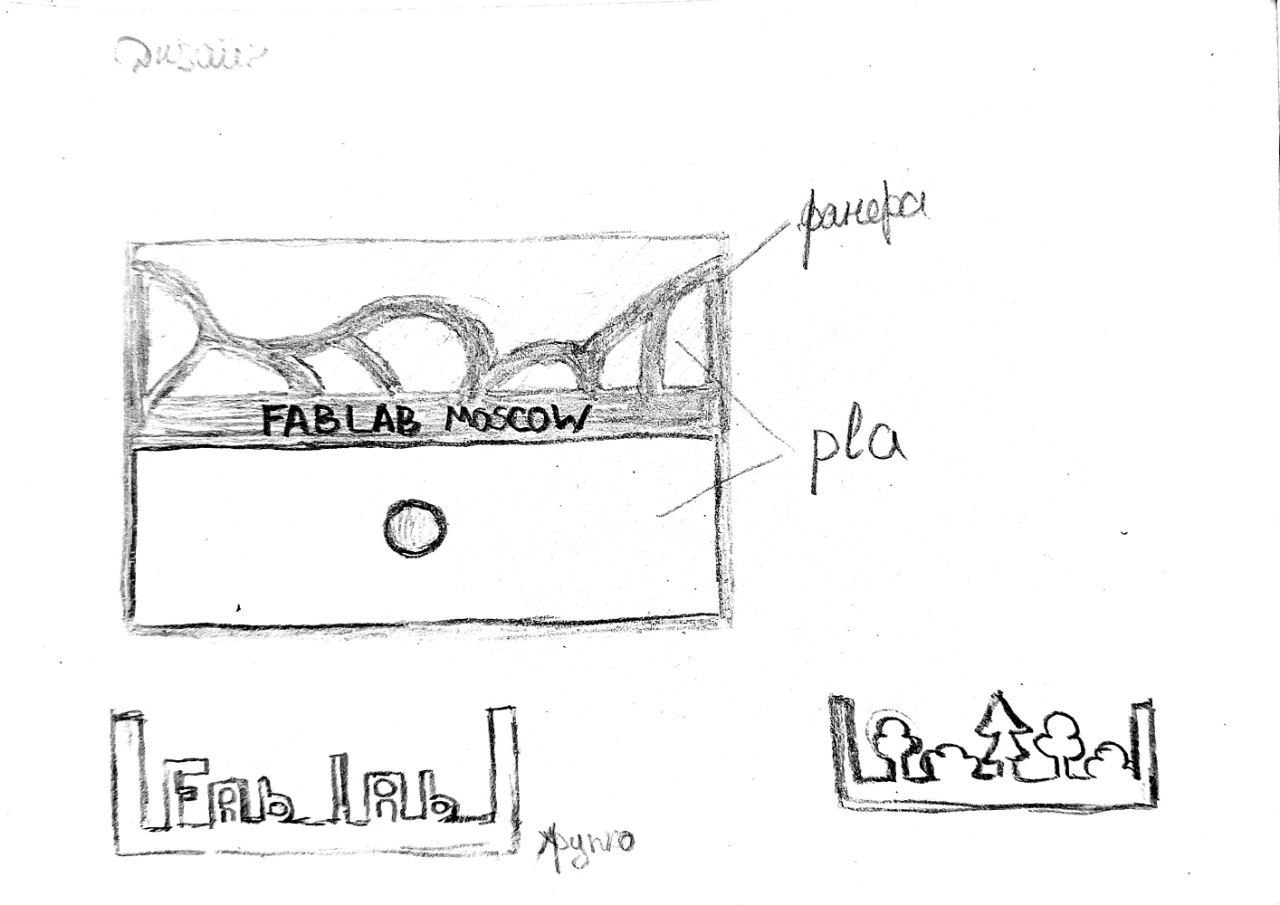 Дизайн
фанера
FABLAB MOSCOW
pla
Fab lab
хрупко